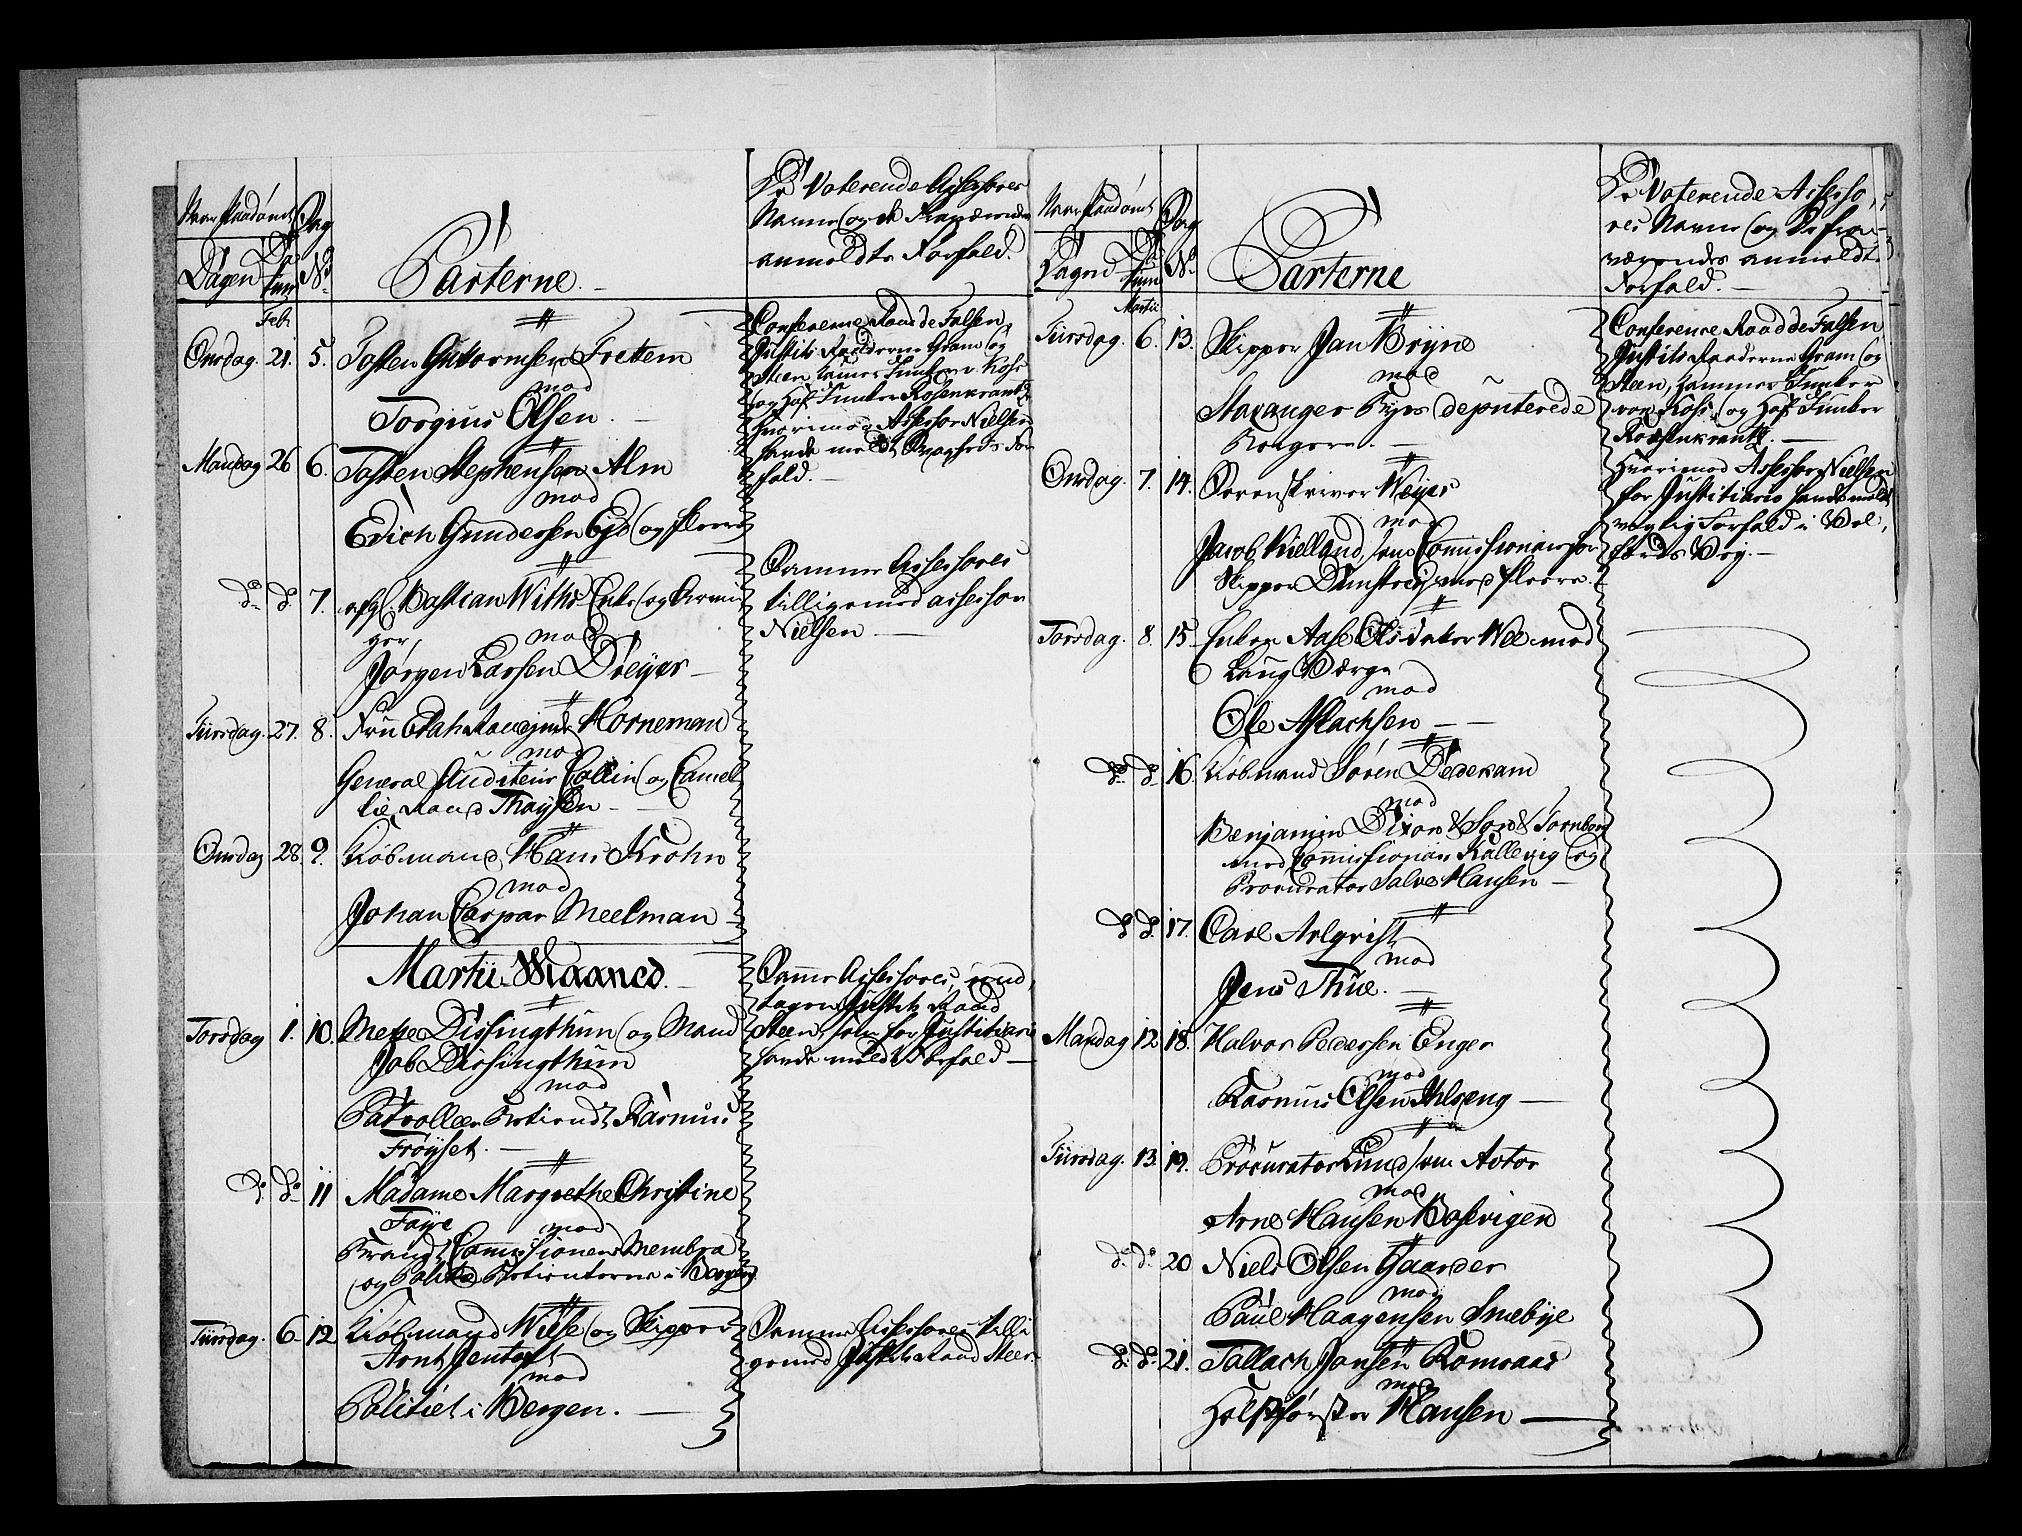 Naar Paadømt
Dag
Dagen
Da
tum
No
Parterne.
De Voterende Assessores
Navne (og de Fraværendes
anmeldte Forfald.
Feb
Onsdag. 21. 5. Tosten Guttormsen Frettem
mod
Torgius Olsen.
Conference Raad de Falsen,
Justits Raaderne Gram (og
Steen, Cammer Junker v. Koss
og Hof Junker Rosenkrantz
hvorimod Assessor Nielsen
havde meldt Svagheds For
fald.
Mandag 26 6. Tosten Stephensen Alm
mod
Erich Gundersen Eje (og fleere
Do Do 7. afgl. Bastian Withs Enke (og Arvin
ger,
mod
Jørgen Larsen Dreyer
Samme Assessores
tilligemed assessor
Nielsen
Tiirsdag. 27. 8. Fru Etatsraadinde Horneman
mod
General Auditeur Collin (og Camel
lie Raad Thaysen
Onsdag 28. 9. Kiøbmand Hans Krohn
mod
Johan Caspar Meelman
Martii Maaned.
Torsdag 1. 10. Mette Dissingthun (og Mand
Job Dissingthun
mod
Patrollen Betiendt Rasmus
Frøyset.
Samme Assessores, und
tagen Justits Raad
Steen, som for Justitiari
havde meldt Forfald
Do Do 11 Madame Margrethe Christine
Faye
mod
Brandt Commissionens Membra
og Politie Betienterne i Bergen
Tiirsdag. 6. 12 Kiøbmand Wilse (og Skipper
Arnt Jentoft
mod
Politiet i Bergen.
Samme Assessores tilli
gemed Justits Raad Steen.
Naar Paadømt
Dag
Dagen
Da
tum
No
Parterne
De Voterende Assesso,
res Navne (og De fra=
værendes anmeldte
Forfald.
Martii
Tiirsdag. 6. 13. Skipper Jan Bryne
mod
Stavanger Byes deputerede
Borgere.
Conference Raad de Falsen
Justits Raaderne Gram (og
Steen, Cammer Junker
von Koss, (og Hof Junker
Rosenkrantz.
Hvorimod Assessor Nielsen
for Justitiario havde meldt
vigtig Forfald i Vel,
færds Vey.
Onsdag. 7. 14. Sorenskriver Weyer
mod
Jacob Kielland, som Commissionair for
Skipper Dimstrey med fleere.
Torsdag. 8. 15. Enken Aase Olsdatter Wee med
Laug Værge
mod
Ole Aslachsen
Do Do 16. Kiøbmand Søren Dedekam
mod
Benjamin Dixon & Son & Tornborg
med Commissionair Kallevig (og
Procurator Salve Hansen
Do Do 17. Carl Arlqvist
mod
Jens Thue.
Mandag 12 18. Halvor Pedersen Enger
mod
Rasmus Olsen Alseng
Tiirsdag. 13. 19. Procurator Lund som Actor
mod
Arne Hansen Bosevigen
Do Do 20 Niels Olsen Gaarder
mod
Paul Haagensen Snebye
Do Do 21. Tallach Jansen Romsaas
mod
Holtzførster Hansen